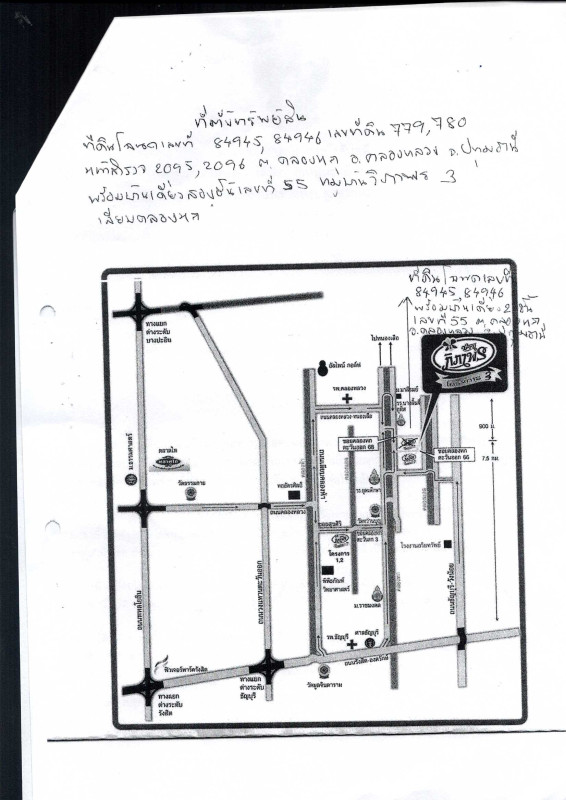 ที่ตั้งทรัพย์สิน
ที่ดินโฉนดเลขที่ 84945, 84946 เลขที่ดิน 779, 780
หน้าสำรวจ 2095, 2096 ต. คลองหก อ. คลองหลวง จ. ปทุมธานี
พร้อมบ้านเดี่ยวสองชั้นเลขที่ 55 หมู่บ้านวิภาพร 3
เลียบคลองหก
ที่ดินโฉนดเลขที่
84945, 84946
พร้อมบ้านเดี่ยว 2 ชั้น
เลขที่ 55 ต. คลองหก
อ. คลองหลวง จ. ปทุมธานี
ไปหนองเสือ
ทางแยก
ต่างระดับ
บางปะอิน
อัลไพน์ กอล์ฟ
รพ.คลองหลวง
ถนนคลองหลวง-หนองเสือ
3
ซอยคลองหก
ตะวันออก 68
ซอยคลองหก
ตะวันออก 66
900 ม.
7.5 กม.
ม.ธรรมศาสตร์
ตลาดไท
วัดธรรมกาย
ถนนคลองหลวง
ถนนเลียบคลองห้า
โครงการ
1,2
พิพิธภัณฑ์
วิทยาศาสตร์
ม.ราชมงคล
ถนนพหลโยธิน
ถนนวงแหวนตะวันออก
ถนนธัญบุรี-วังน้อย
รพ.ธัญบุรี
ศาลธัญบุรี
ถนนรังสิต-องครักษ์
ฟิวเจอร์พาร์ครังสิต
ทางแยก
ต่างระดับ
รังสิต
ทางแยก
ต่างระดับ
ธัญบุรี
วัดมูลจินดาราม